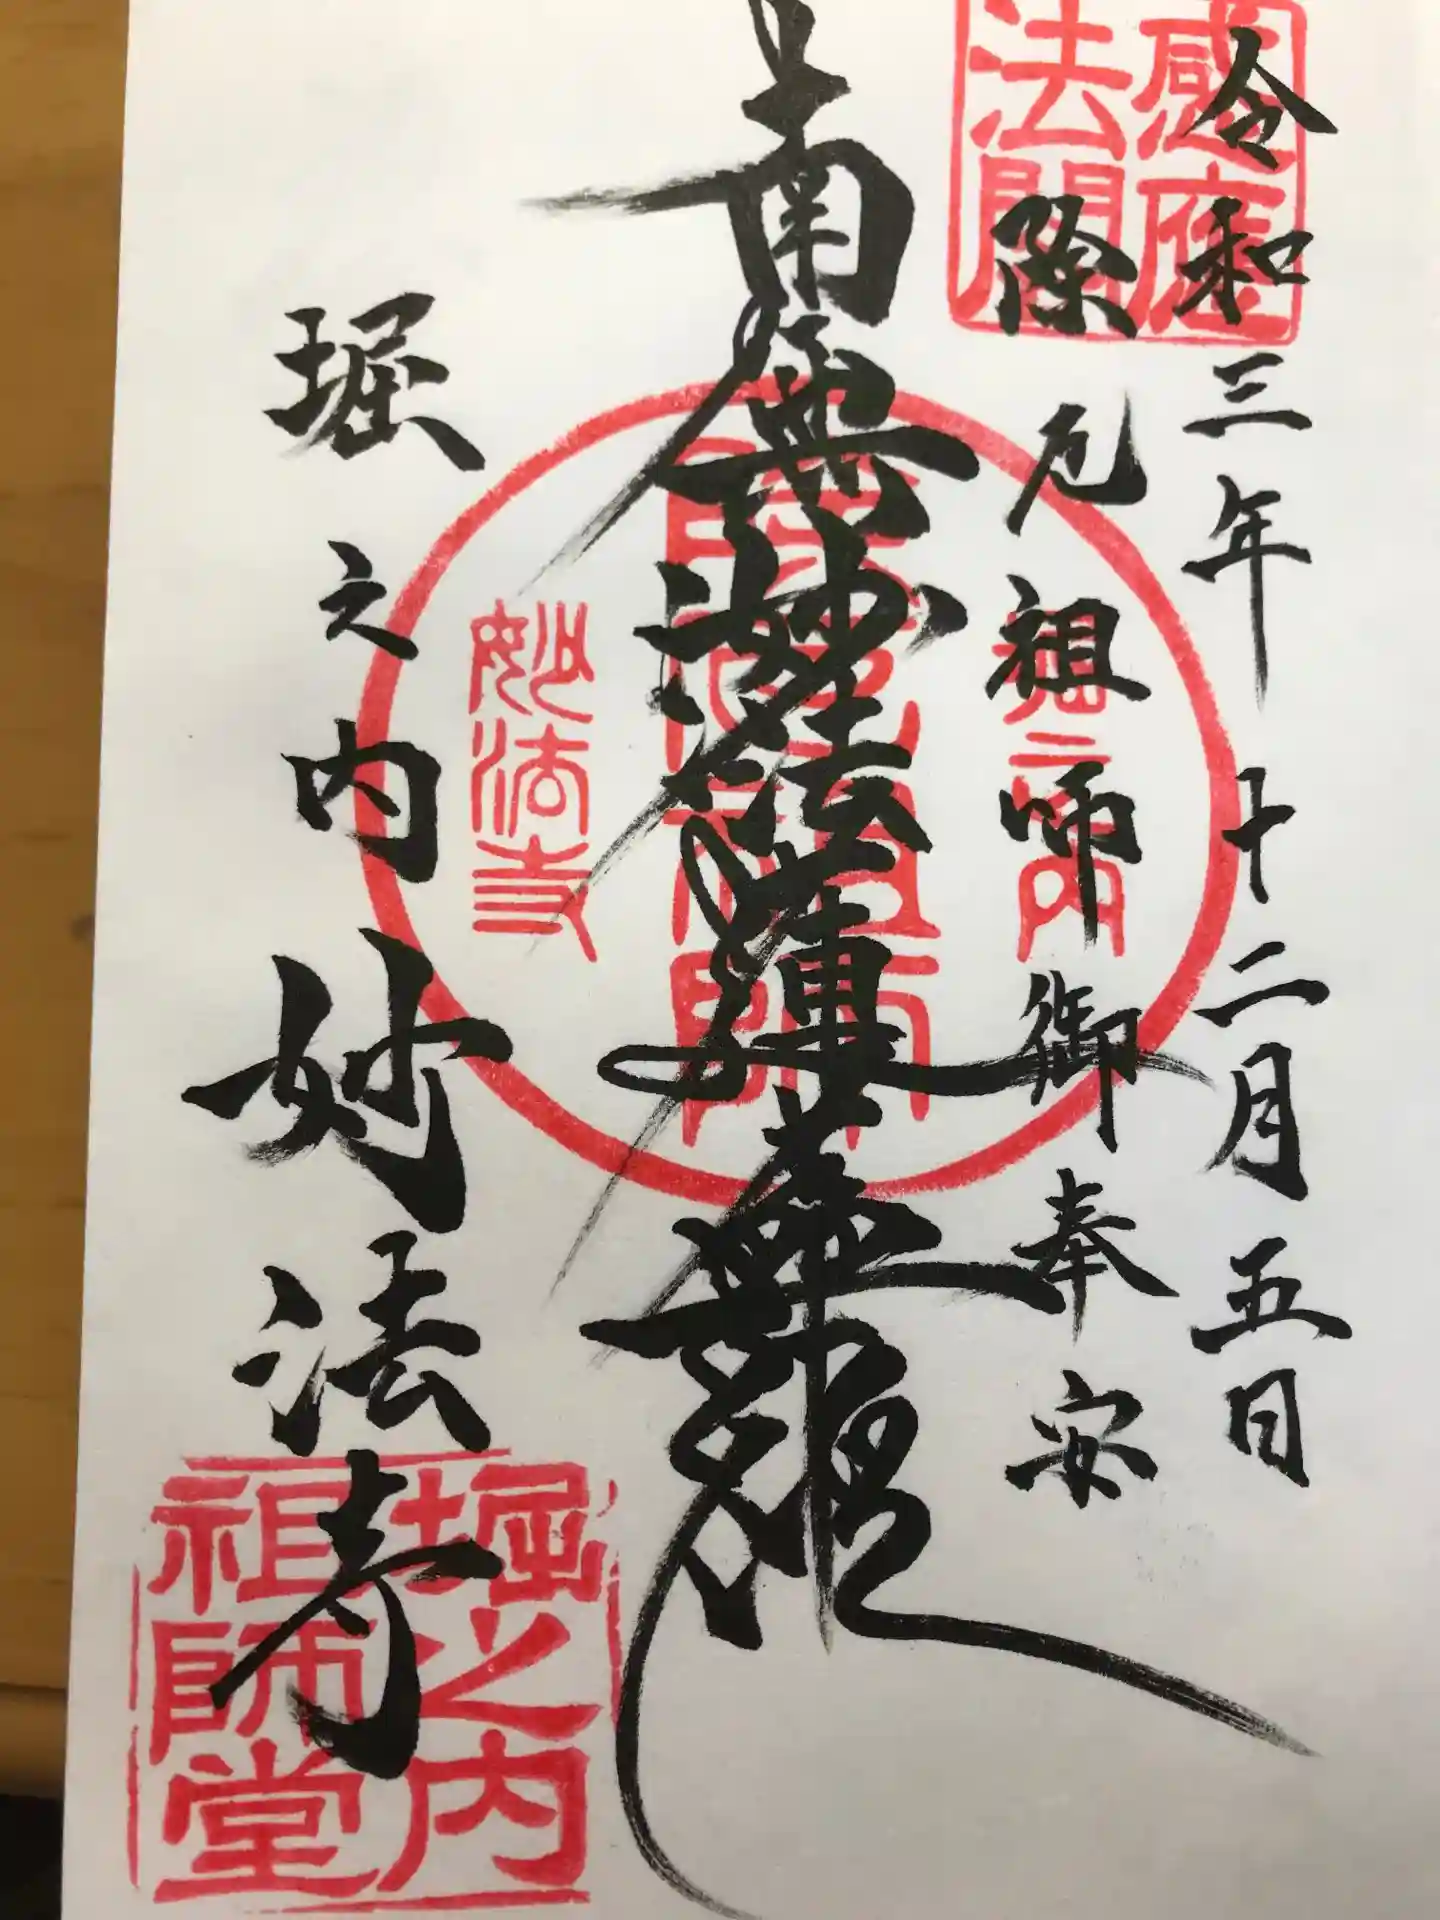 令和三年十二月五日
感應
法閣
除厄祖師御奉安
堀之内
南無妙法蓮華経
除厄祖師
妙法寺
堀之内妙法寺
堀之内
祖師堂